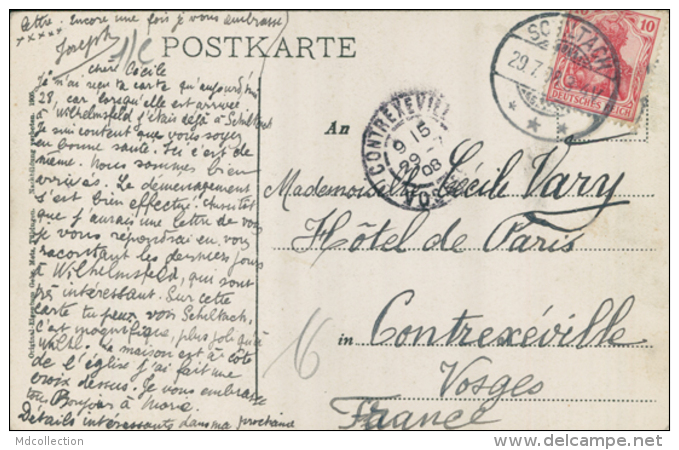 lettre. Encore une fois je vous embrasse
xxxxx
Joseph
POSTKARTE
chère Cécile
Je n'ai reçu ta carte qu'aujourd'hui
28, car lorsqu'elle est arrivée
à Wilhelmsfeld j'étais déjà à Schiltach
Je suis content que vous soyez
en bonne santé. Ici c'est de
même. Nous sommes bien
arrivés. Le déménagement
s'est bien effectué. Aussitôt
que j'aurai une lettre de vous
je vous répondrai en vous
racontant les derniers jours
à Wilhelmsfeld, qui sont
très intéressant. Sur cette
carte tu peux voir Schiltach,
c'est magnifique, plus joli qu'à
Wilh. La maison est à côté
de l'église j'ai fait une
croix dessus. Je vous embrasse
tous Bonjour à
Détails intéressants dans ma prochaine
An
Mademoiselle Cécile Vary
Hôtel de Paris
in Contrexéville
Vosges
France
6
SCHILTACH
29.7.08
10
DEUTSCHES REICH
CONTREXEVILLE
9 15
29 -7
08
VOSGES
Nachbildung verboten. 1906.
Mdcollection
www.delcampe.net